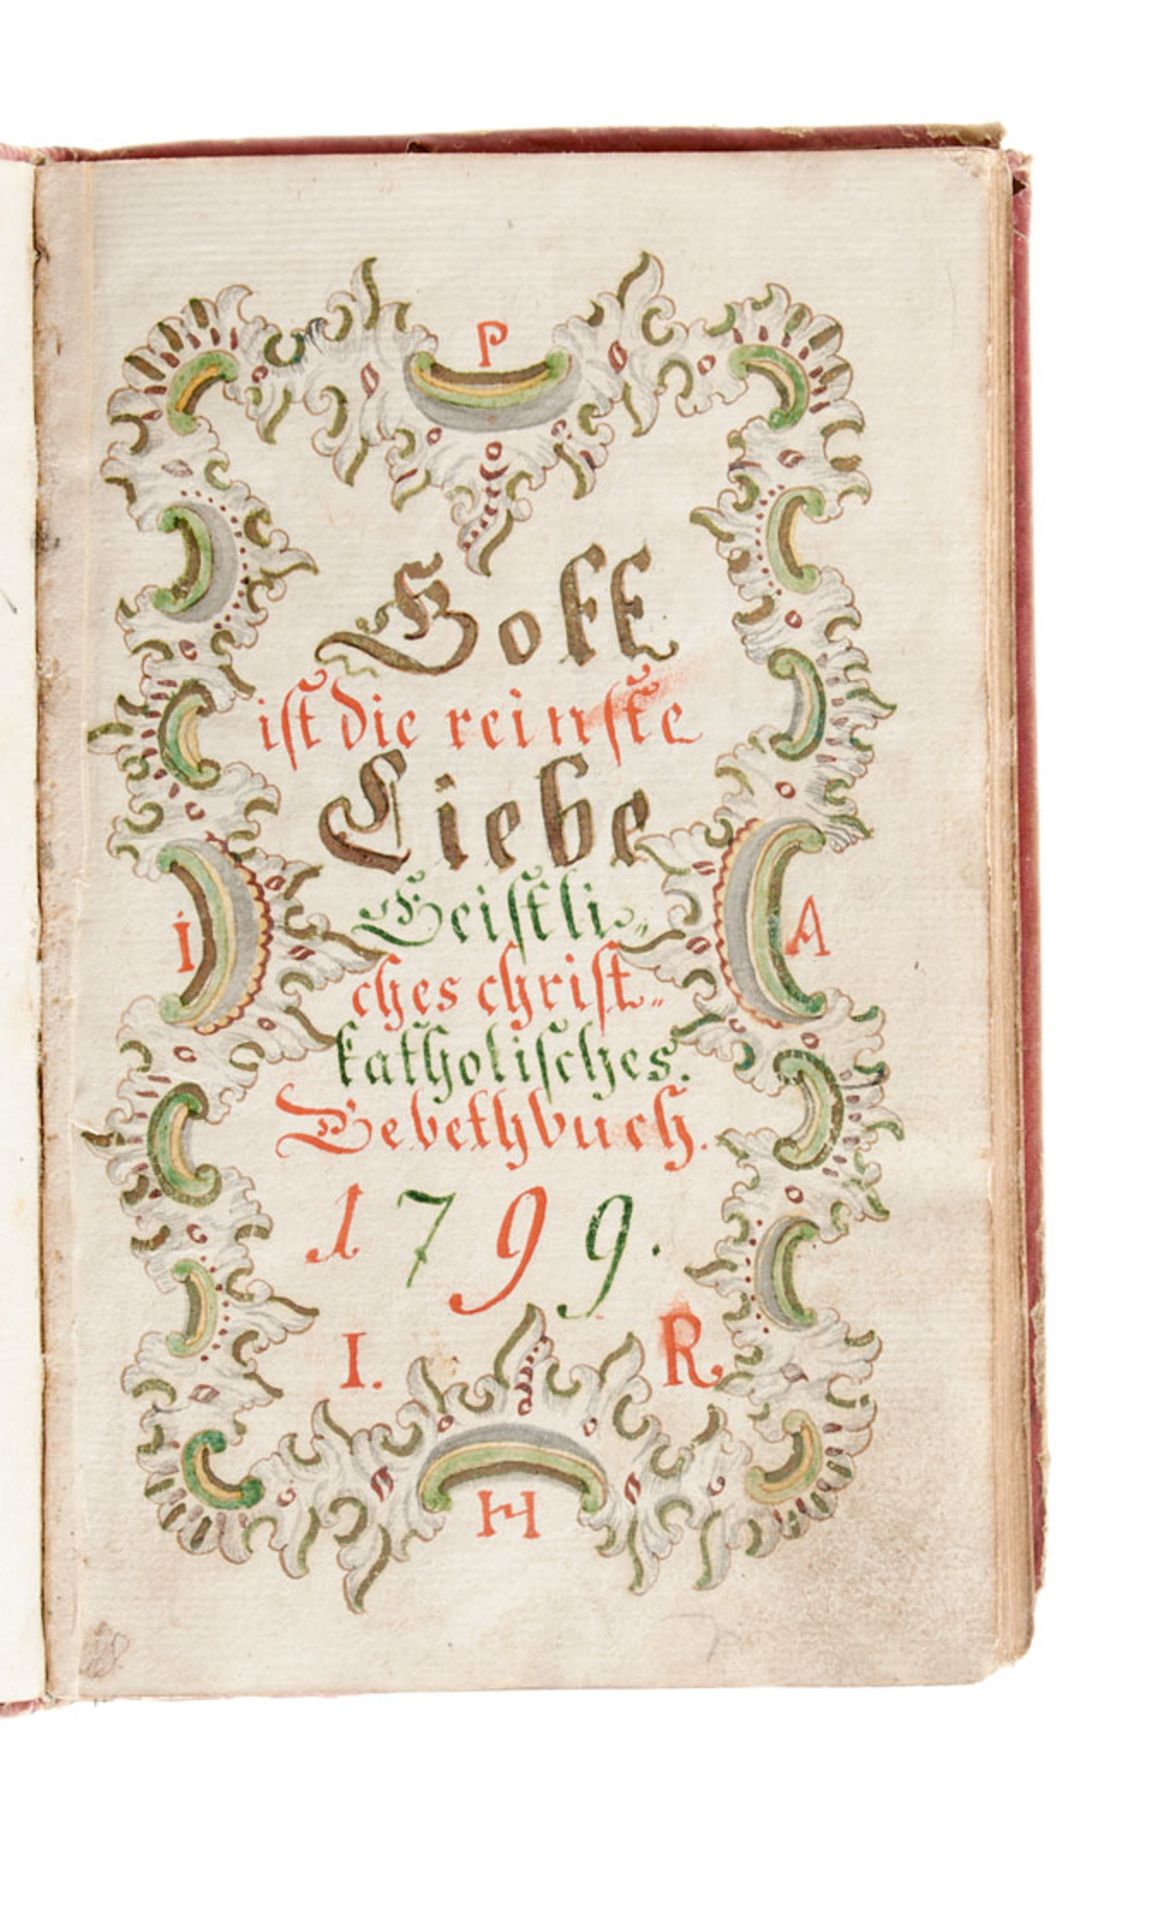 P
Gott
ist die reinste
Liebe
Geistli„
I A
ches christ„
katholisches.
Gebethbuch.
1799.
I. R.
H